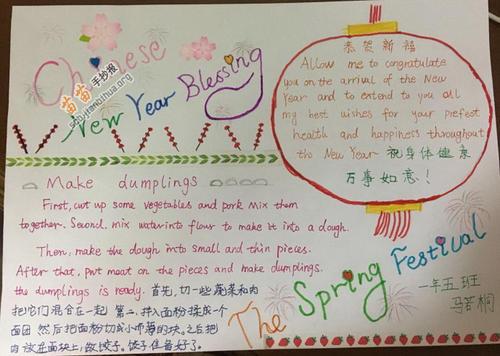 Chinese
New Year Blessing
苗苗手抄报
恭贺新福
Allow me to congratulate
you on the arrival of the New
Year and to extend to you all
my best wishes for your prefect
health and happiness throughout
the New Year 祝身体健康
万事如意！
Make dumplings
First, cut up some vegetables and pork Mix them
together. Second, mix water into flour to make it into a dough.
Then, make the dough into small and thin pieces.
After that, put meat on the pieces and make dumplings.
the dumplings is ready. 首先，切一些蔬菜和肉
把它们混合在一起 第二，拌入面粉揉成一个
面团 然后把面粉切成小而薄的块。之后把
肉放在面块上，做饺子。饺子准备好了。
The Spring Festival
一年五班
马若桐